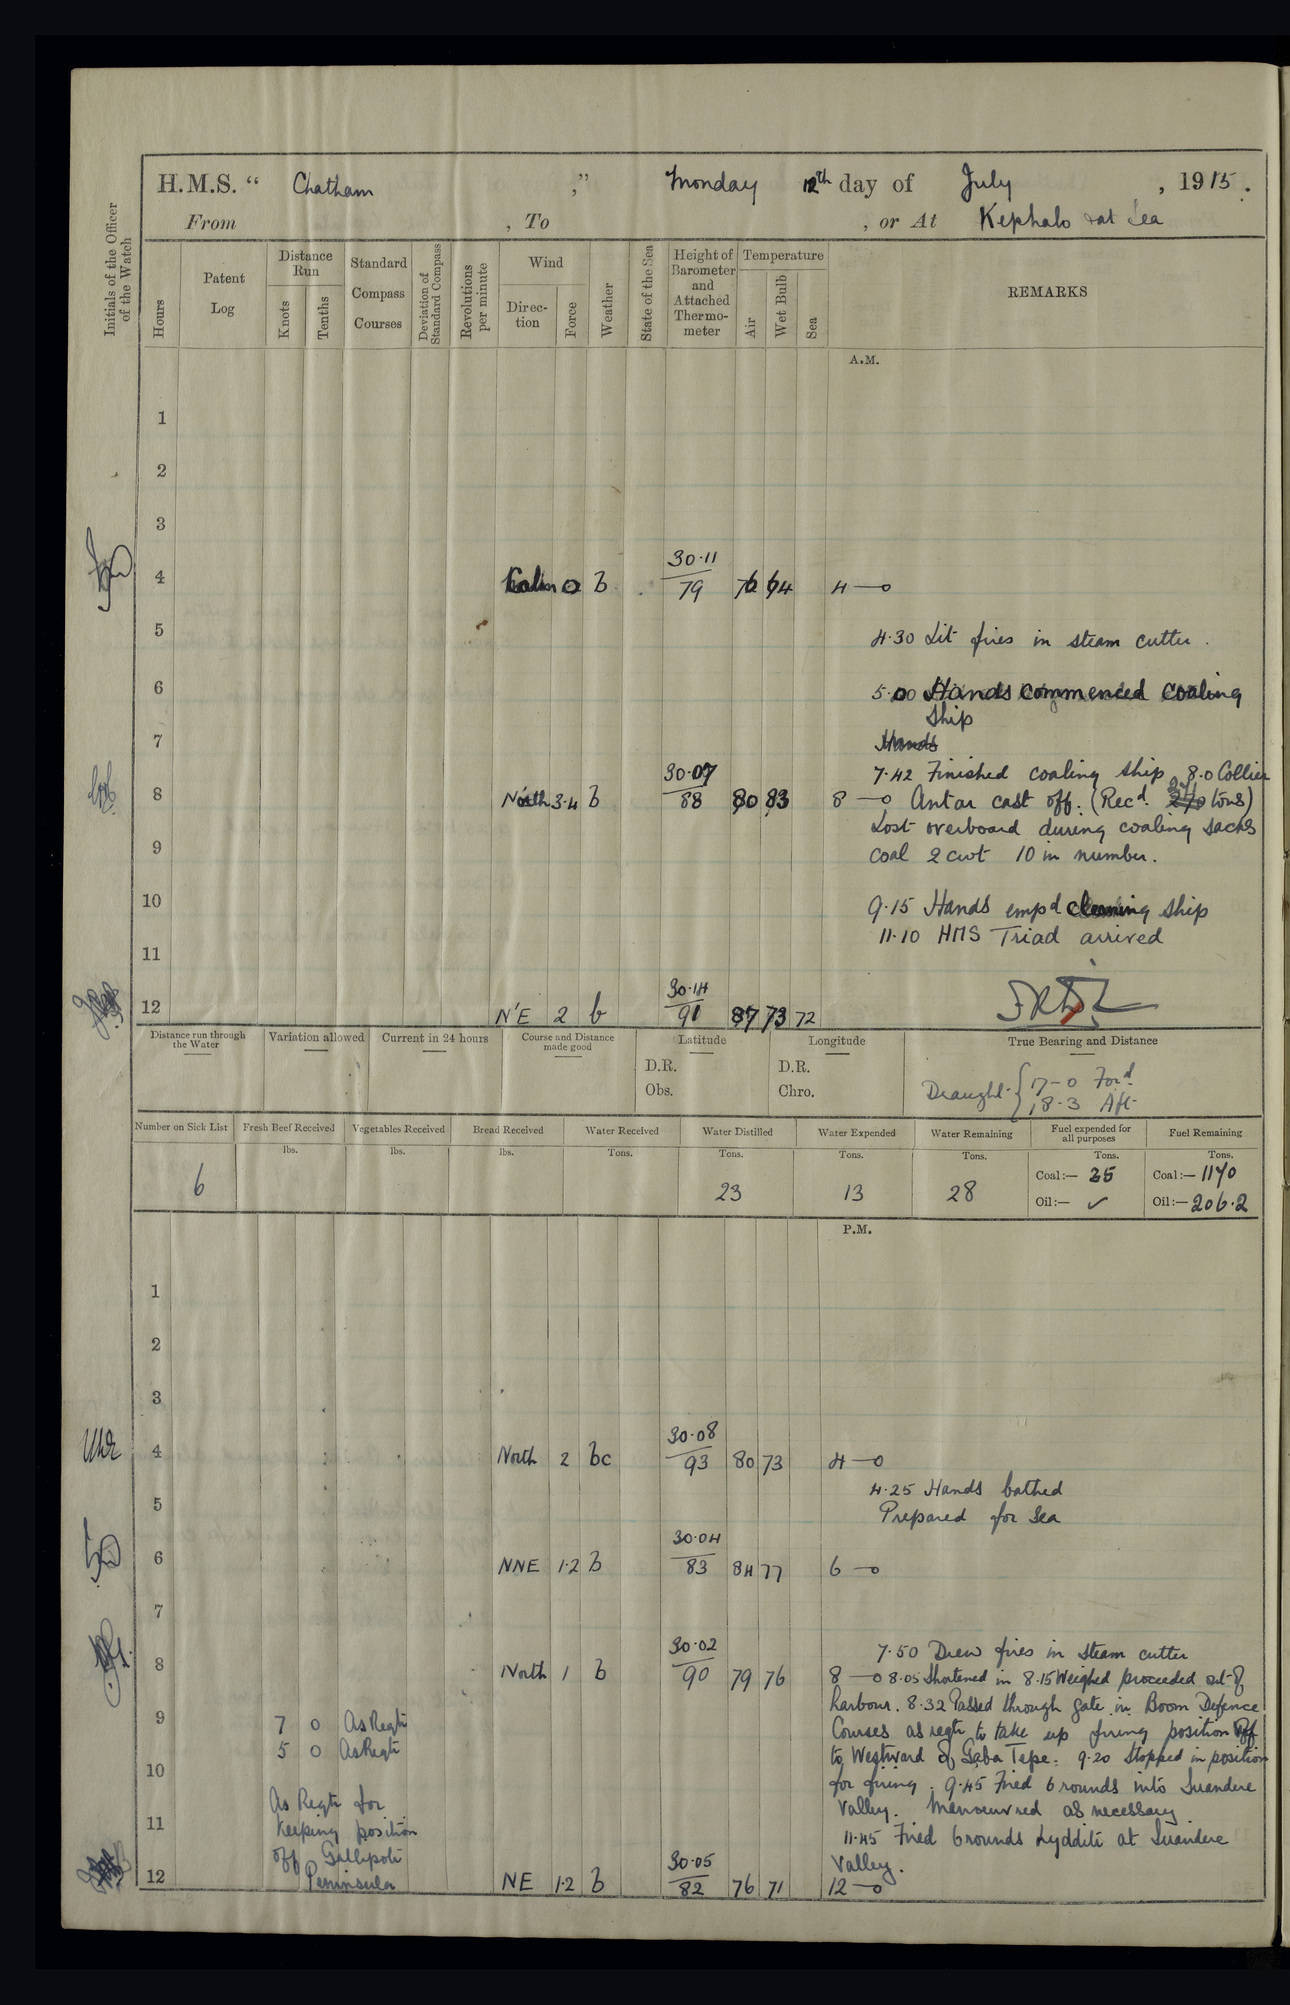 H.M.S. “ Chatham ,” Monday 12th day of July , 1915.
From , To , or At Kephalo & at Sea
Initials of the Officer of the Watch
Hours
Patent Log
Distance Run
Knots
Tenths
Standard Compass Courses
Deviation of Standard Compass
Revolutions per minute
Wind
Direc-tion
Force
Weather
State of the Sea
Height of Barometer and Attached Thermo-meter
Temperature
Air
Wet Bulb
Sea
REMARKS
A.M.
1
2
3
30·11
4 Calm 0 b 79 76 64 4 —o
5 4·30 Lit fires in steam cutter.
6 5·00 Hands commenced coaling
ship
7 Hands
30·07 7·42 Finished coaling ship 8·0 Collier
8 North 3·4 b 88 80 83 8 —o Antar cast off. (Recd. tons)
Lost overboard during coaling sacks
9 coal 2 cwt 10 in number.
10 9·15 Hands empd cleaning ship
11·10 HMS Triad arrived
11
30·14
12 N'E 2 b 91 87 73 72
Distance run through the Water
Variation allowed
Current in 24 hours
Course and Distance made good
Latitude
D.R.
Obs.
Longitude
D.R.
Chro.
True Bearing and Distance
Draught { 17-0 Ford.
18-3 Aft
Number on Sick List Fresh Beef Received Vegetables Received Bread Received Water Received Water Distilled Water Expended Water Remaining Fuel expended for all purposes Fuel Remaining
lbs. lbs. lbs. Tons. Tons. Tons. Tons. Tons. Tons.
Coal:— 35 Coal:— 1170
6 23 13 28
Oil:— ✓ Oil:— 206·2
P.M.
1
2
3
30·08
4 North 2 bc 93 80 73 4 —o
4·25 Hands bathed
5 Prepared for Sea
30·04
6 NNE 1·2 b 83 84 77 6 —o
7
30·02 7·50 Drew fires in steam cutter
8 North 1 b 90 79 76 8 —o 8·05 Shortened in 8·15 Weighed proceeded out of
harbour. 8·32 Passed through gate in Boom Defence
9 7 0 As Reqte Courses as reqte to take up firing position off
5 0 As Reqte to Westward of Gaba Tepe. 9·20 Stopped in position
10 for firing. 9·45 Fired 6 rounds into Suandere
As Reqte for Valley. Manoeuvred as necessary.
11 Keeping position 11·45 Fired 6 rounds Lyddite at Suandere
off Gallipoli 30·05 Valley.
12 Peninsula NE 1·2 b 82 76 71 12 —o